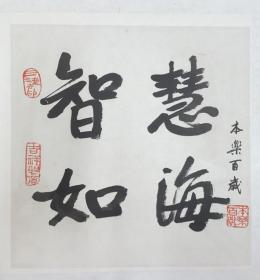 慧海
智如
本樂百歲